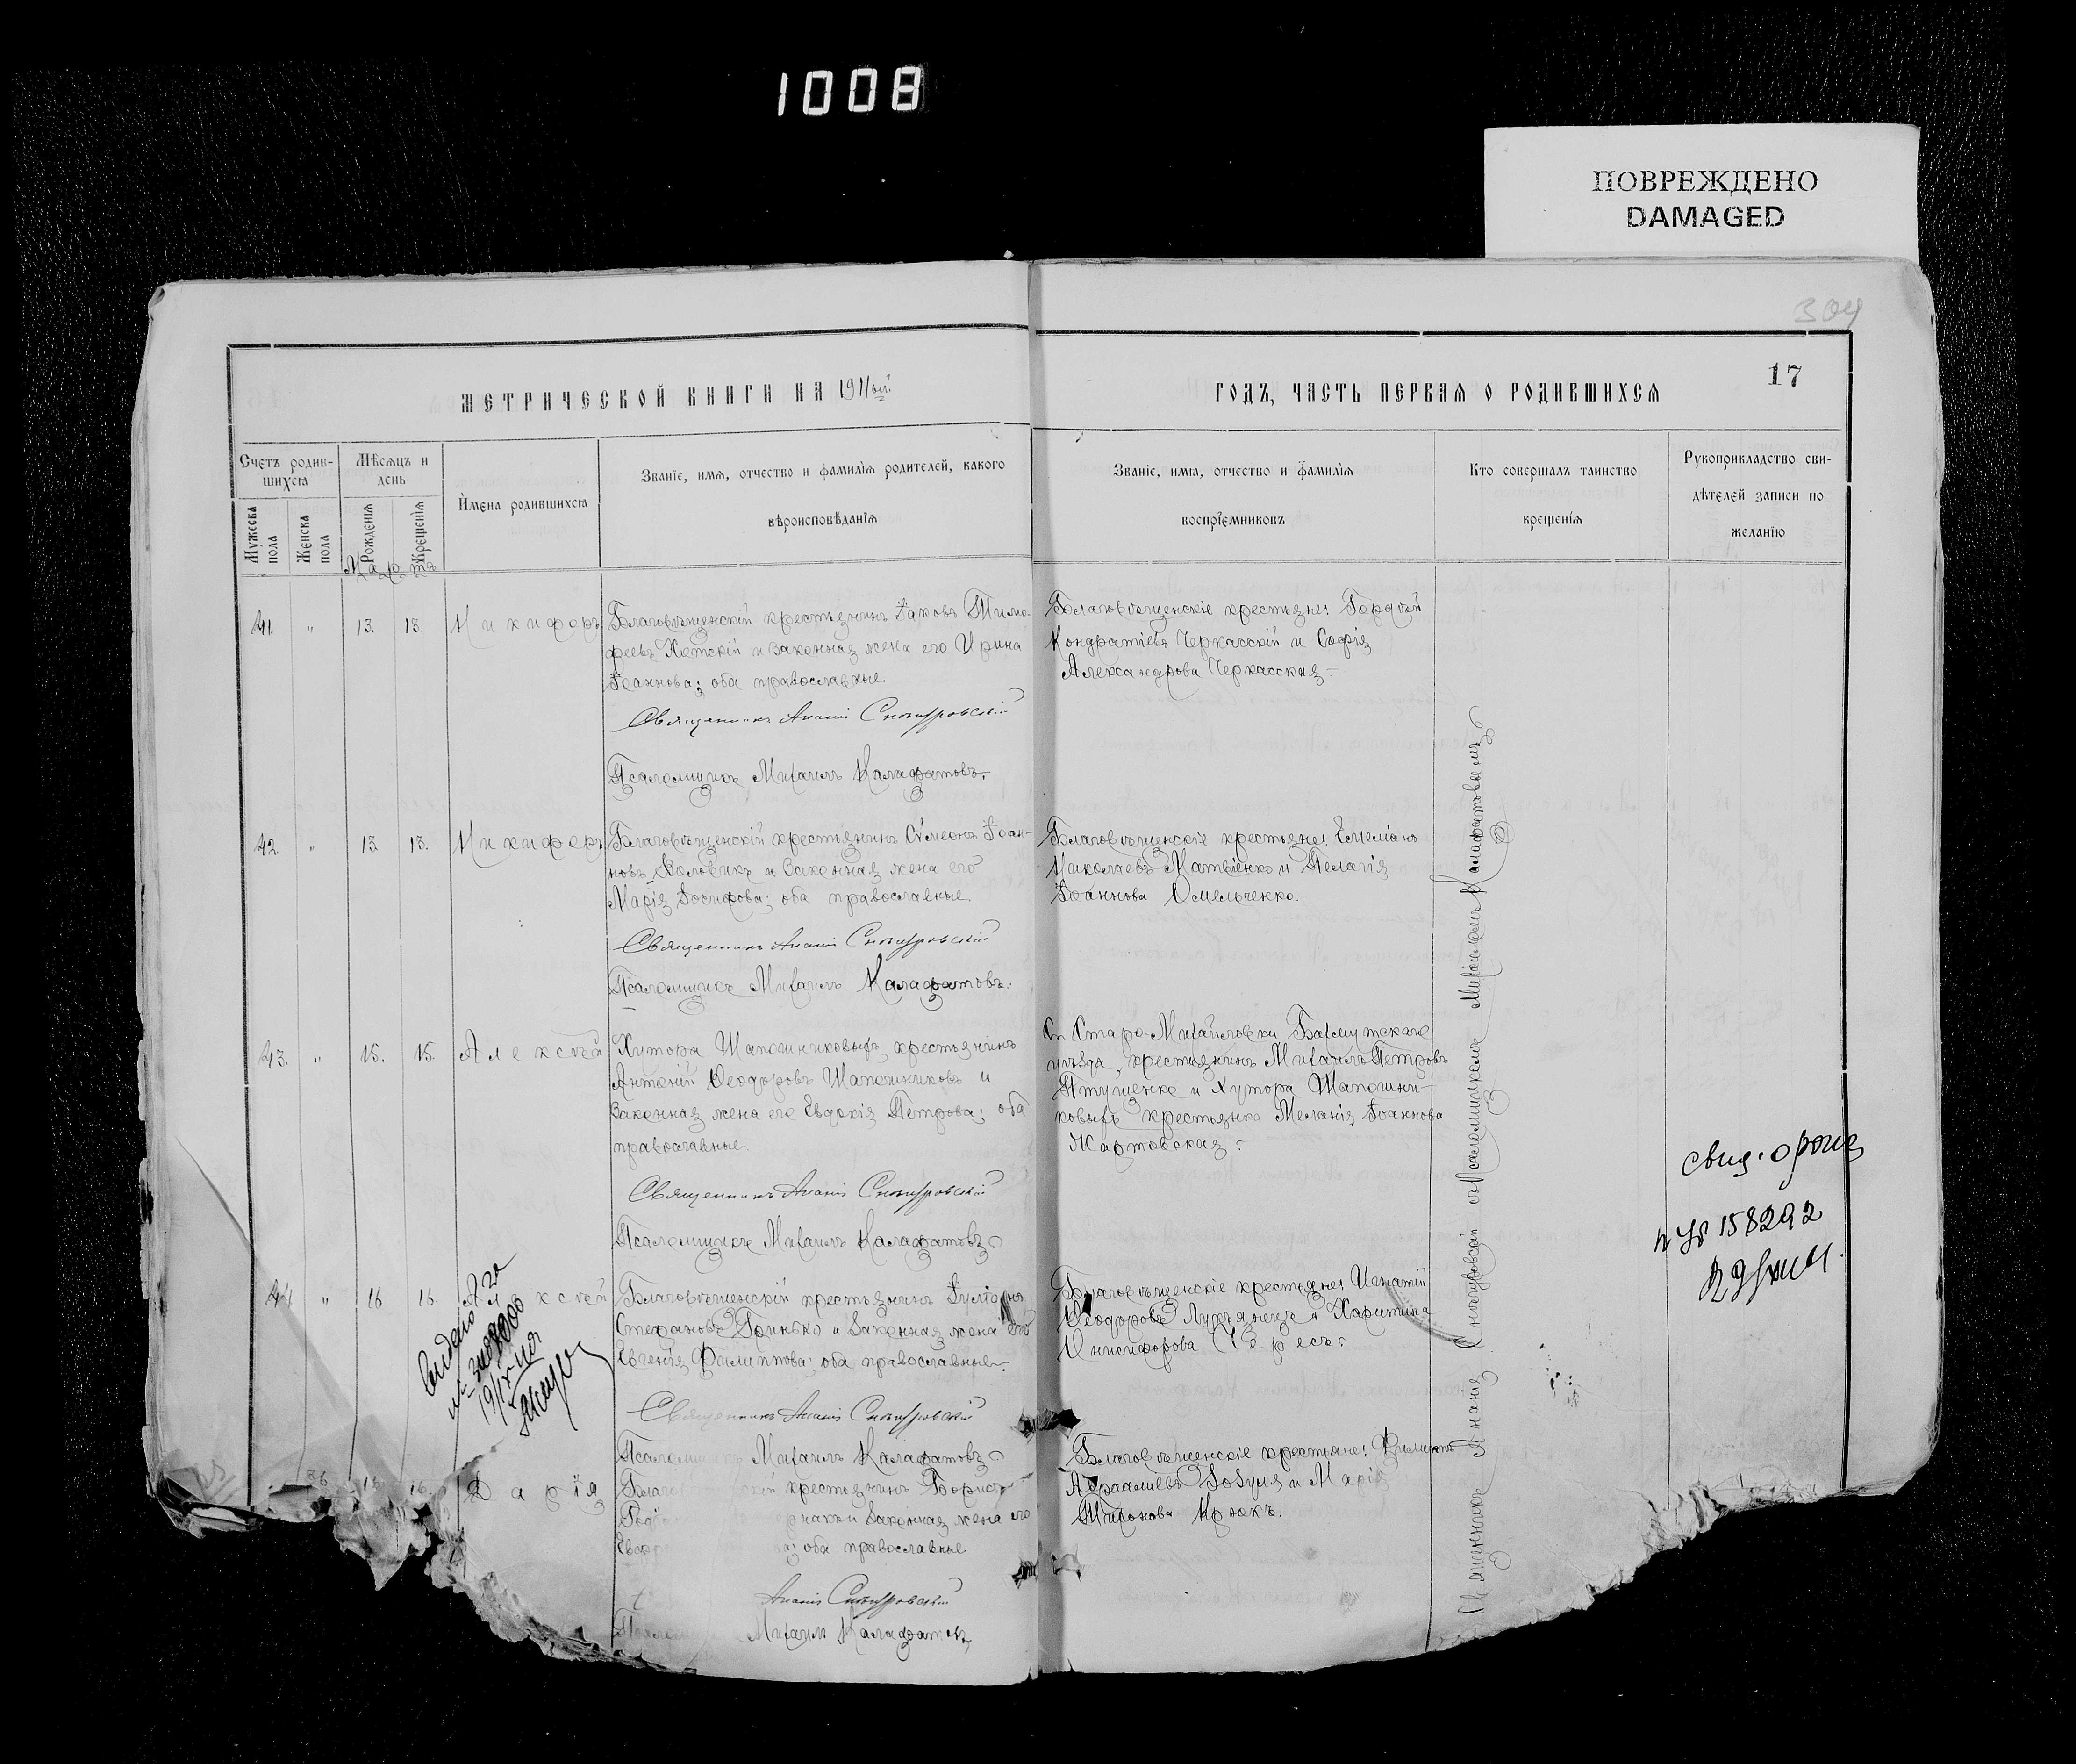 1008
ПОВРЕЖДЕНО
DAMAGED
304
17
МЕТРИЧЕСКОЙ КНИГИ НА 1911ый
ГОДЪ, ЧАСТЬ ПЕРВАЯ О РОДИВШИХСЯ
Счетъ родившихся
Мужеска пола
Женска пола
Мѣсяцъ и день
Рожденія
Крещенія
Имена родившихся
Званіе, имя, отчество и фамилія родителей, какого
вѣроисповѣданія
Званіе, имя, отчество и фамилія
воспріемниковъ
Кто совершалъ таинство
крещенія
Рукоприкладство сви-
дѣтелей записи по
желанію
Мартъ
41. " 13. 13. Никифоръ
Благовѣщенскій крестьянинъ Іаковъ Тимо-
феевъ и законная жена его Ирина
Іоаннова; оба православные.
Священникъ Ананій Снѣгуровскій
Псаломщикъ Михаилъ Калафатовъ.
Благовѣщенскіе крестьяне: Гордѣй
Кондратіевъ Черкасскій и Софія
Александрова Черкасская.
42. " 13. 13. Никифоръ
Благовѣщенскій крестьянинъ Сѵмеонъ Іоан-
новъ Воловикъ и законная жена его
Марія Іосифова; оба православные.
Священникъ Ананій Снѣгуровскій
Псаломщикъ Михаилъ Калафатовъ.
Благовѣщенскіе крестьяне: Емеліанъ
Николаевъ Матвіенко и Пелагія
Іоаннова Омельченко.
43. " 15. 15. Алексѣй
Хутора Шапошниковыхъ, крестьянинъ
Антоній Ѳеодоровъ Шапошниковъ и
законная жена его Евдокія Петрова; оба
православные.
Священникъ Ананій Снѣгуровскій
Псаломщикъ Михаилъ Калафатовъ
С. Старо-Михайловки Бахмутскаго
уѣзда, крестьянинъ Михаилъ Петровъ
Птушенко и Хутора Шапошни-
ковыхъ крестьянка Меланія Іоаннова
44. " 16. 16. Алексѣй
Благовѣщенскій крестьянинъ Іуліанъ
Стефановъ Гринько и законная жена его
Евгенія Филиппова; оба православные.
Священникъ Ананій Снѣгуровскій
Псаломщикъ Михаилъ Калафатовъ
Благовѣщенскіе крестьяне: Игнатій
Ѳеодоровъ Лукьянецъ и Харитина
Онисифорова
16. 16. Дарія
крестьянинъ Борисъ
законная жена его
оба православные
Ананій Снѣгуровскій
Михаилъ Калафатовъ
Благовѣщенскіе крестьяне: Филиппъ
Авраамовъ Зозуля и Марія
Тихонова Крюкъ.
Священникъ Ананій Снѣгуровскій съ Псаломщикомъ Михаиломъ Калафатовымъ
158292